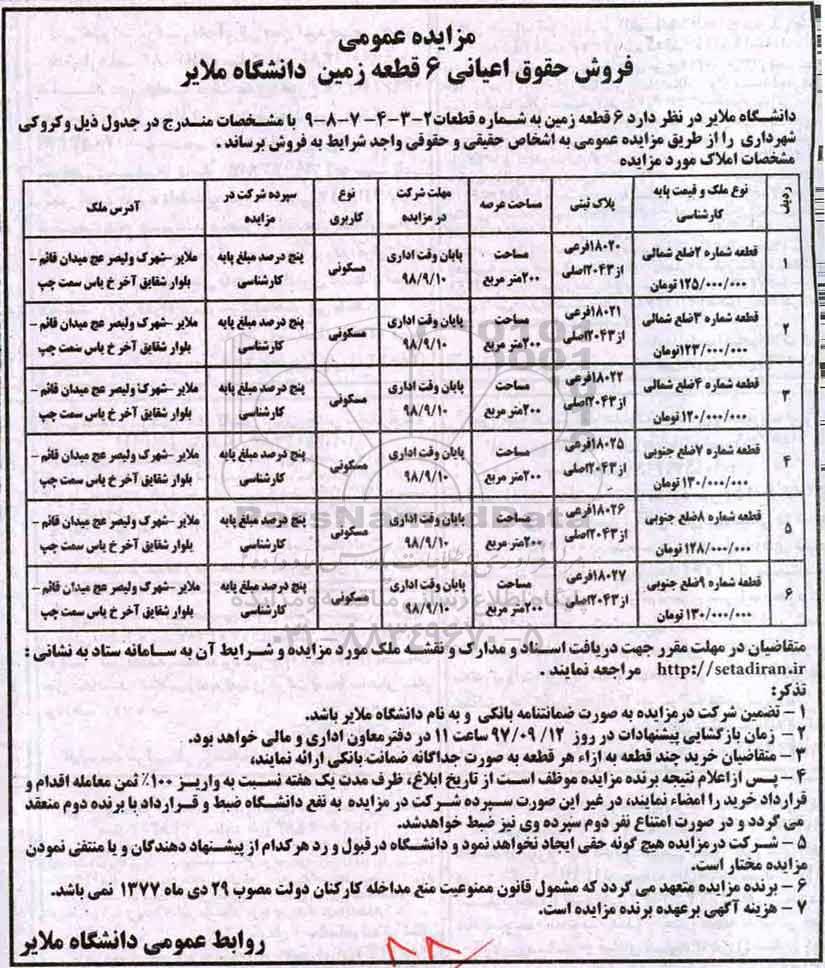 مزایده عمومی
فروش حقوق اعیانی ۶ قطعه زمین دانشگاه ملایر
دانشگاه ملایر در نظر دارد ۶ قطعه زمین به شماره قطعات ۲-۳-۴-۷-۸-۹ با مشخصات مندرج در جدول ذیل و کروکی
شهرداری را از طریق مزایده عمومی به اشخاص حقیقی و حقوقی واجد شرایط به فروش برساند .
مشخصات املاک مورد مزایده
ردیف | نوع ملک و قیمت پایه کارشناسی | پلاک ثبتی | مساحت عرصه | مهلت شرکت در مزایده | نوع کاربری | سپرده شرکت در مزایده | آدرس ملک
۱ | قطعه شماره ۲ضلع شمالی ۱۲۵/۰۰۰/۰۰۰ تومان | ۱۸۰۲۰فرعی از۲۰۴۳اصلی | مساحت ۲۰۰متر مربع | پایان وقت اداری ۹۸/۹/۱۰ | مسکونی | پنج درصد مبلغ پایه کارشناسی | ملایر -شهرک ولیعصر عج میدان قائم - بلوار شقایق آخر خ یاس سمت چپ
۲ | قطعه شماره ۳ضلع شمالی ۱۲۳/۰۰۰/۰۰۰تومان | ۱۸۰۲۱فرعی از۲۰۴۳اصلی | مساحت ۲۰۰متر مربع | پایان وقت اداری ۹۸/۹/۱۰ | مسکونی | پنج درصد مبلغ پایه کارشناسی | ملایر -شهرک ولیعصر عج میدان قائم - بلوار شقایق آخر خ یاس سمت چپ
۳ | قطعه شماره ۴ضلع شمالی ۱۲۰/۰۰۰/۰۰۰ تومان | ۱۸۰۲۲فرعی از۲۰۴۳اصلی | مساحت ۲۰۰متر مربع | پایان وقت اداری ۹۸/۹/۱۰ | مسکونی | پنج درصد مبلغ پایه کارشناسی | ملایر -شهرک ولیعصر عج میدان قائم - بلوار شقایق آخر خ یاس سمت چپ
۴ | قطعه شماره ۷ضلع جنوبی ۱۳۰/۰۰۰/۰۰۰ تومان | ۱۸۰۲۵فرعی از۲۰۴۳اصلی | مساحت ۲۰۰متر مربع | پایان وقت اداری ۹۸/۹/۱۰ | مسکونی | پنج درصد مبلغ پایه کارشناسی | ملایر -شهرک ولیعصر عج میدان قائم - بلوار شقایق آخر خ یاس سمت چپ
۵ | قطعه شماره ۸ضلع جنوبی ۱۲۸/۰۰۰/۰۰۰ تومان | ۱۸۰۲۶فرعی از۲۰۴۳اصلی | مساحت ۲۰۰متر مربع | پایان وقت اداری ۹۸/۹/۱۰ | مسکونی | پنج درصد مبلغ پایه کارشناسی | ملایر -شهرک ولیعصر عج میدان قائم - بلوار شقایق آخر خ یاس سمت چپ
۶ | قطعه شماره ۹ضلع جنوبی ۱۳۰/۰۰۰/۰۰۰ تومان | ۱۸۰۲۷فرعی از۲۰۴۳اصلی | مساحت ۲۰۰متر مربع | پایان وقت اداری ۹۸/۹/۱۰ | مسکونی | پنج درصد مبلغ پایه کارشناسی | ملایر -شهرک ولیعصر عج میدان قائم - بلوار شقایق آخر خ یاس سمت چپ
ParsNamadData
پایگاه اطلاع رسانی مناقصه و مزایده
۰۲۱-۸۸۳۴۹۶۷۰-۵
متقاضیان در مهلت مقرر جهت دریافت اسناد و مدارک و نقشه ملک مورد مزایده و شرایط آن به سامانه ستاد به نشانی :
http://setadiran.ir مراجعه نمایند .
تذکر:
۱- تضمین شرکت درمزایده به صورت ضمانتنامه بانکی و به نام دانشگاه ملایر باشد.
۲- زمان بازگشایی پیشنهادات در روز ۹۷/۰۹/۱۲ ساعت ۱۱ در دفترمعاون اداری و مالی خواهد بود.
۳- متقاضیان خرید چند قطعه به ازاء هر قطعه به صورت جداگانه ضمانت بانکی ارائه نمایند،
۴- پس ازاعلام نتیجه برنده مزایده موظف است از تاریخ ابلاغ، ظرف مدت یک هفته نسبت به واریز ۱۰۰٪ ثمن معامله اقدام و
قرارداد خرید را امضاء نمایند، در غیر این صورت سپرده شرکت در مزایده به نفع دانشگاه ضبط و قرارداد با برنده دوم منعقد
می گردد و در صورت امتناع نفر دوم سپرده وی نیز ضبط خواهدشد.
۵- شرکت درمزایده هیچ گونه حقی ایجاد نخواهد نمود و دانشگاه درقبول و رد هرکدام از پیشنهاد دهندگان و یا منتفی نمودن
مزایده مختار است.
۶- برنده مزایده متعهد می گردد که مشمول قانون ممنوعیت منع مداخله کارکنان دولت مصوب ۲۹ دی ماه ۱۳۷۷ نمی باشد.
۷- هزینه آگهی برعهده برنده مزایده است.
روابط عمومی دانشگاه ملایر